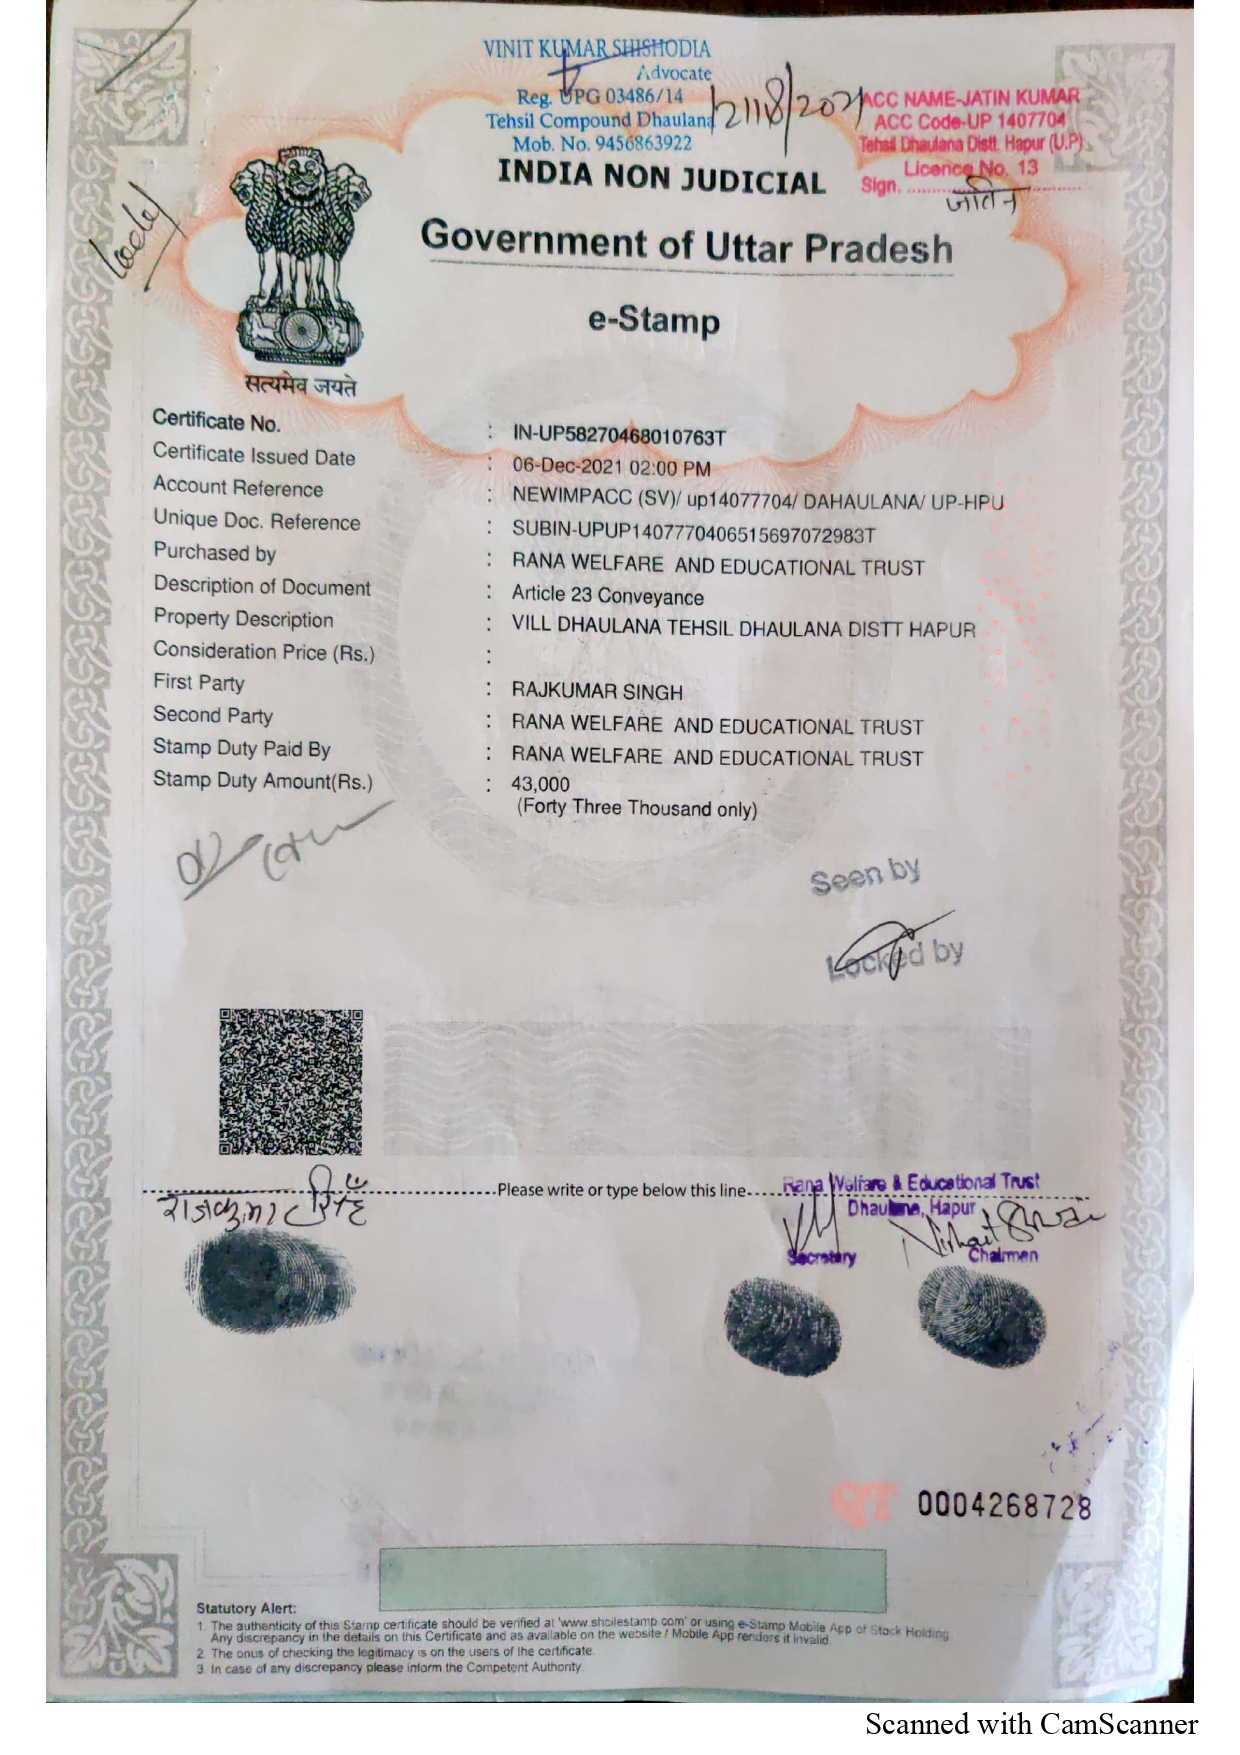 VINIT KUMAR SHISHODIA
Advocate
Reg. UPG 03486/14
Tehsil Compound Dhaulana
Mob. No. 9456863922
ACC NAME-JATIN KUMAR
ACC Code-UP 1407704
Tehsil Dhaulana Distt. Hapur (U.P)
Licence No. 13
Sign. ....................
जतिन
INDIA NON JUDICIAL
Government of Uttar Pradesh
e-Stamp
सत्यमेव जयते
Certificate No. : IN-UP58270468010763T
Certificate Issued Date : 06-Dec-2021 02:00 PM
Account Reference : NEWIMPACC (SV)/ up14077704/ DAHAULANA/ UP-HPU
Unique Doc. Reference : SUBIN-UPUP1407770406515697072983T
Purchased by : RANA WELFARE AND EDUCATIONAL TRUST
Description of Document : Article 23 Conveyance
Property Description : VILL DHAULANA TEHSIL DHAULANA DISTT HAPUR
Consideration Price (Rs.) :
First Party : RAJKUMAR SINGH
Second Party : RANA WELFARE AND EDUCATIONAL TRUST
Stamp Duty Paid By : RANA WELFARE AND EDUCATIONAL TRUST
Stamp Duty Amount(Rs.) : 43,000
(Forty Three Thousand only)
Seen by
Locked by
Please write or type below this line
राजकुमार सिंह
Rana Welfare & Educational Trust
Dhaulana, Hapur
Secretary
Chairmen
QT 0004268728
Statutory Alert:
1. The authenticity of this Stamp certificate should be verified at 'www.shcilestamp.com' or using e-Stamp Mobile App of Stock Holding
Any discrepancy in the details on this Certificate and as available on the website / Mobile App renders it invalid.
2. The onus of checking the legitimacy is on the users of the certificate.
3. In case of any discrepancy please inform the Competent Authority.
Scanned with CamScanner